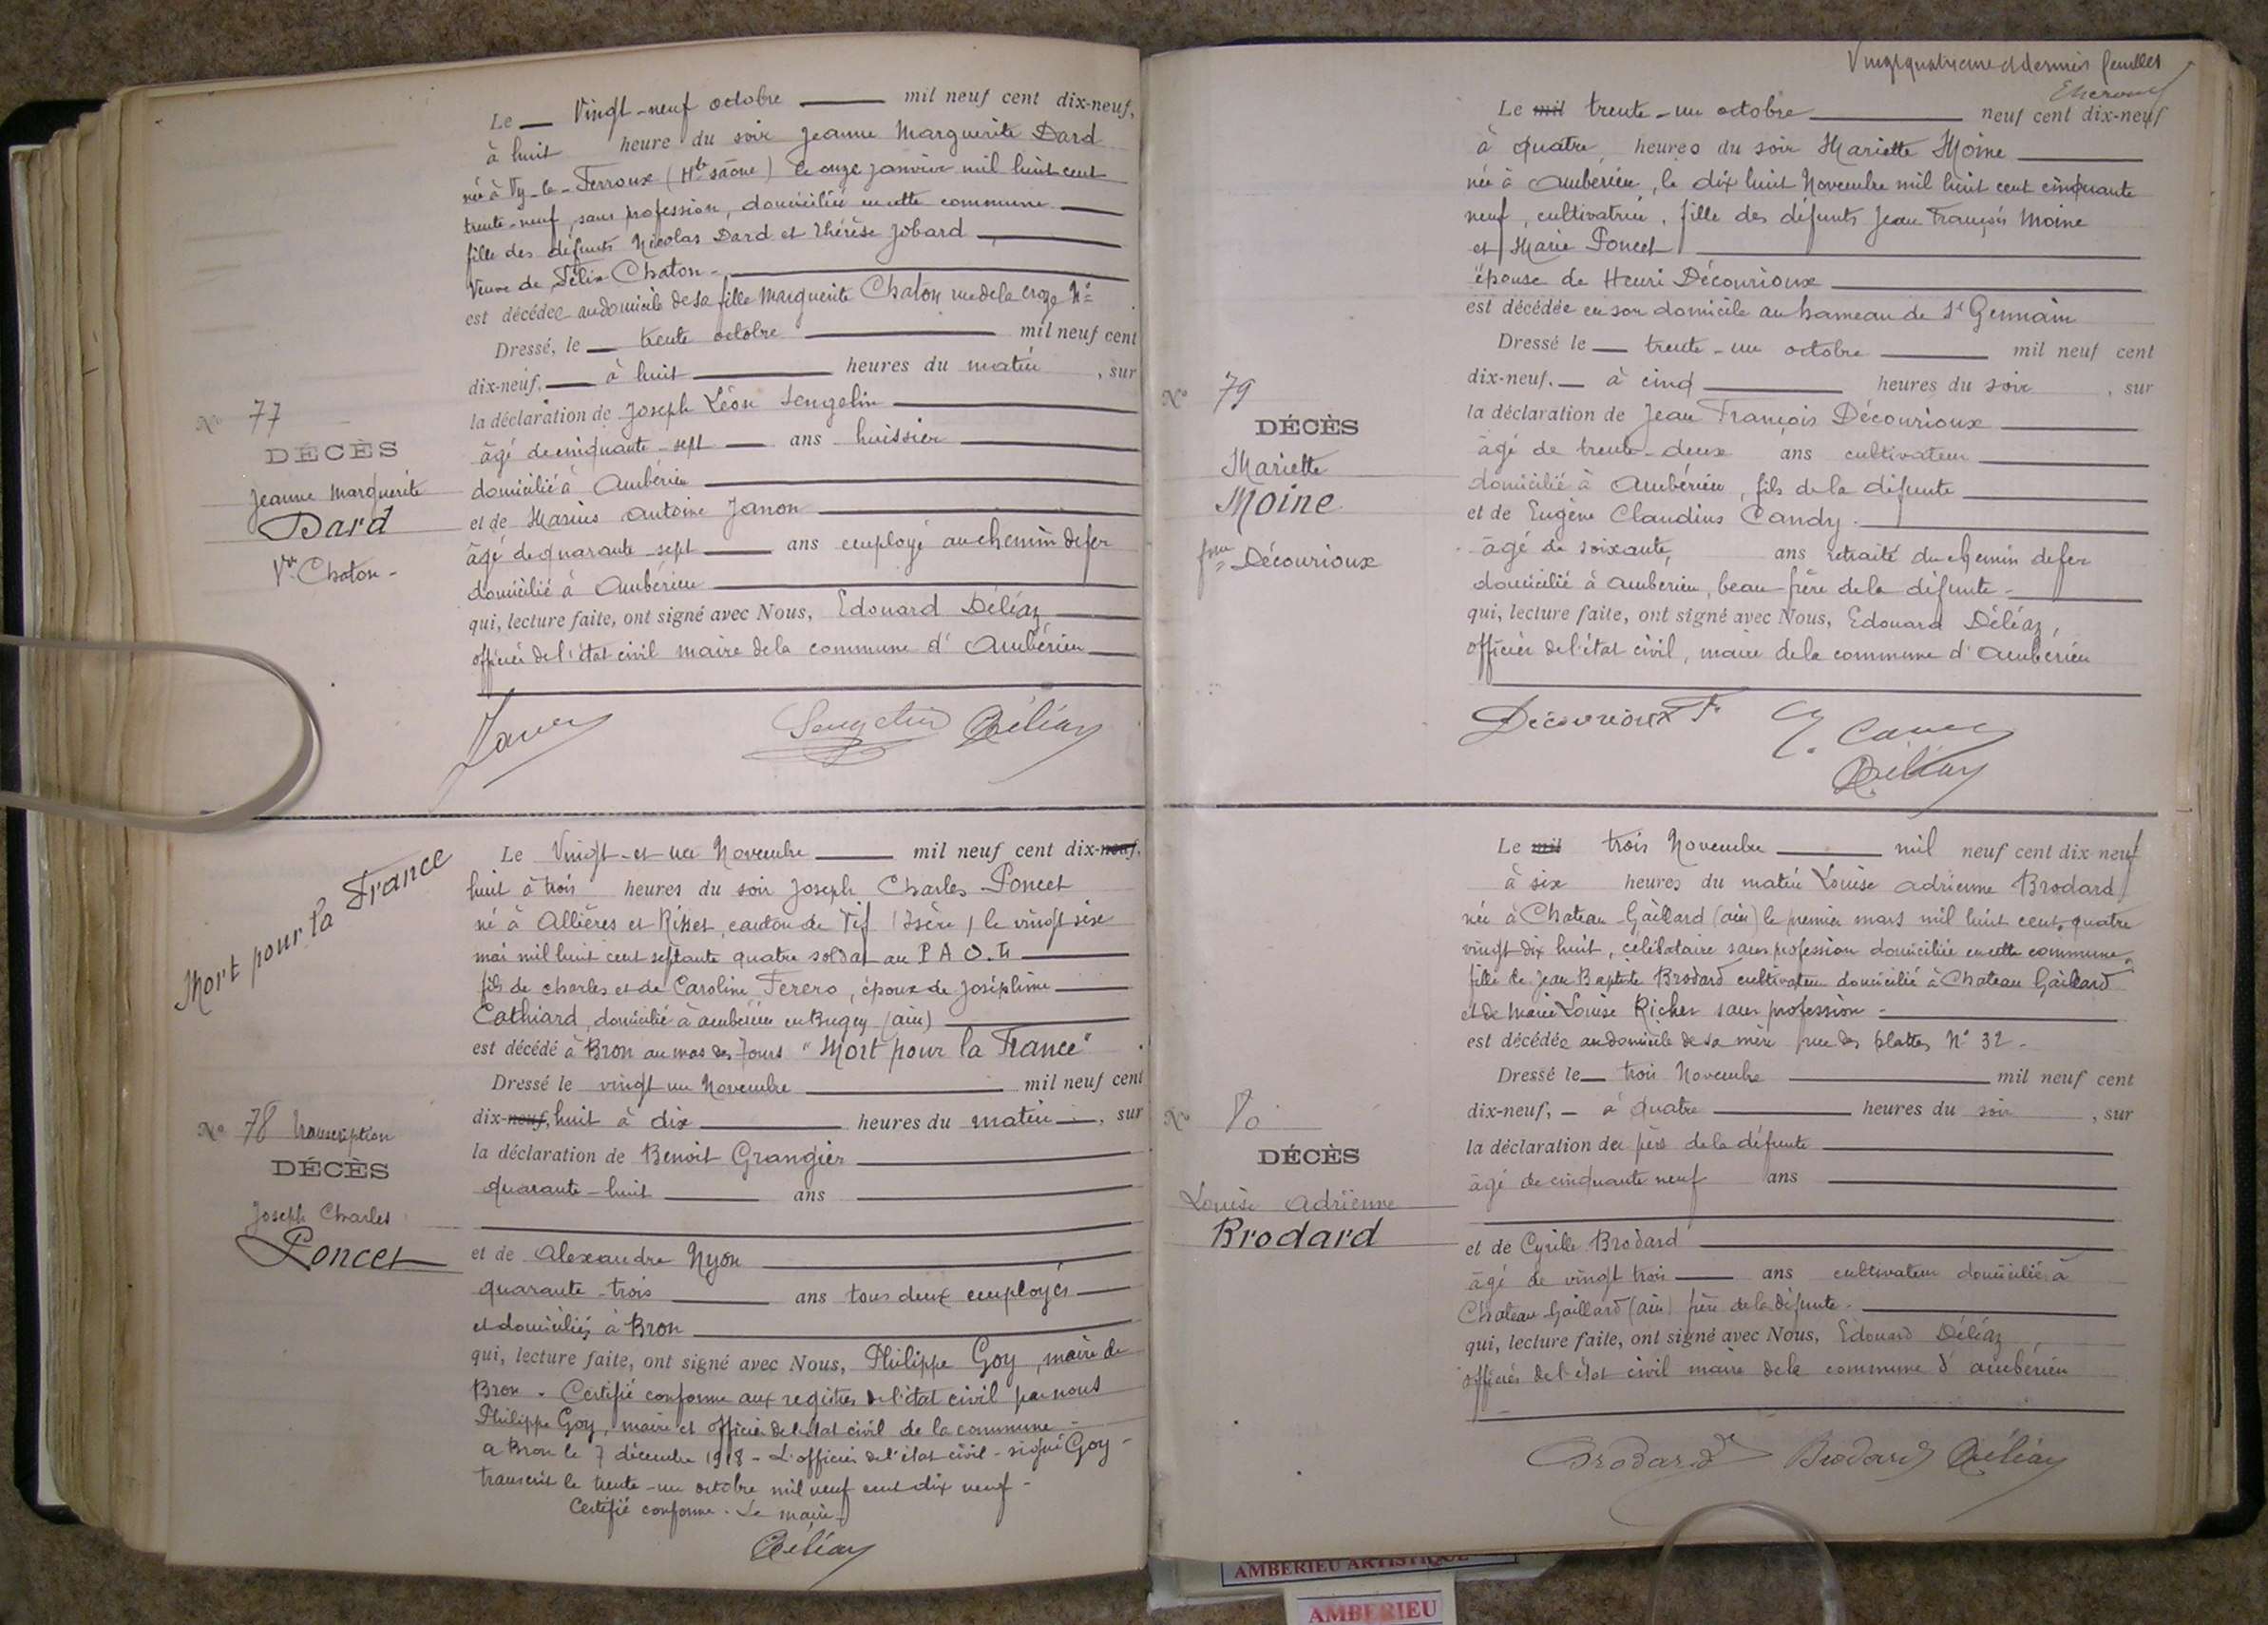 Le Vingt-neuf octobre mil neuf cent dix-neuf,
à huit heure du soir Jeanne Marguerite Dard
née à Vy-le-Ferroux (Hte Saône) le onze janvier mil huit cent
trente-neuf, sans profession, domiciliée en cette commune
fille des défunts Nicolas Dard et Thérèse Jobard
Veuve de Félix Chaton
est décédée au domicile de sa fille Marguerite Chaton rue de la croze No
Dressé, le trente octobre mil neuf cent
dix-neuf, à huit heures du matin, sur
la déclaration de Joseph Léon Sengelin
âgé de cinquante-sept ans huissier
domicilié à Ambérieu
et de Marius Antoine Janon
âgé de quarante sept ans employé au chemin de fer
domicilié à Ambérieu
qui, lecture faite, ont signé avec Nous, Edouard Déléaz
officier de l'état civil maire de la commune d'Ambérieu
No 77
DÉCÈS
Jeanne Marguerite
Dard
Vve Chaton
Sengelin Déléaz
Mort pour la France
Le Vingt-et un Novembre mil neuf cent dix-neuf,
huit à trois heures du soir Joseph Charles Poncet
né à Allières et Risset, canton de Vif (Isère) le vingt six
mai mil huit cent septante quatre soldat au P A O. 
fils de Charles et de Caroline Ferero, époux de Joséphine
Cathiard, domicilié à Ambérieu en Bugey (ain)
est décédé à Bron au mas des Tours "Mort pour la France"
Dressé le vingt un Novembre mil neuf cent
dix-neuf, huit à dix heures du matin, sur
la déclaration de Benoit Grangier
quarante-huit ans
et de Alexandre Nyon
quarante-trois ans tous deux employés
et domiciliés à Bron
qui, lecture faite, ont signé avec Nous, Philippe Goy, maire de
Bron. Certifié conforme aux registres de l'état civil par nous
Philippe Goy, maire et officier de l'état civil de la commune
a Bron le 7 décembre 1918 - L'officier de l'état civil - signé Goy -
transcrit le trente-un octobre mil neuf cent dix neuf -
Certifié conforme. Le maire
Déléaz
No 78 transcription
DÉCÈS
Joseph Charles
Poncet
Vingtquatrieme et dernier feuillet
Le mil trente-un octobre neuf cent dix-neuf
à quatre heures du soir Mariette Moine
née à Ambérieu, le dix huit Novembre mil huit cent cinquante
neuf, cultivatrice, fille des défunts Jean François Moine
et Marie Poncet
épouse de Henri Décourioux
est décédée en son domicile au hameau de St Germain
Dressé le trente-un octobre mil neuf cent
dix-neuf. à cinq heures du soir, sur
la déclaration de Jean François Décourioux
âgé de trente-deux ans cultivateur
domicilié à Ambérieu, fils de la défunte
et de Eugène Claudius Candy
âgé de soixante ans retraité du chemin de fer
domicilié à Ambérieu, beau-frère de la défunte
qui, lecture faite, ont signé avec Nous, Edouard Déléaz,
officier de l'état civil, maire de la commune d'Ambérieu
No 79
DÉCÈS
Mariette
Moine
fme Décourioux
Décourioux F.
Déléaz
Le mil trois Novembre mil neuf cent dix neuf
à six heures du matin Louise Adrienne Brodard
née à Chateau-Gaillard (ain) le premier mars mil huit cent quatre
vingt dix huit, célibataire sans profession domiciliée en cette commune
fille de Jean Baptiste Brodard cultivateur domicilié à Chateau Gaillard
et de Marie Louise Richer sans profession
est décédée au domicile de sa mère rue des plattes No 32
Dressé le trois Novembre mil neuf cent
dix-neuf, à quatre heures du soir, sur
la déclaration du père de la défunte
âgé de cinquante neuf ans
et de Cyrille Brodard
âgé de vingt trois ans cultivateur domicilié à
Chateau-Gaillard (ain) frère de la défunte
qui, lecture faite, ont signé avec Nous, Edouard Déléaz
officier de l'état civil maire de la commune d'ambérieu
No 80
DÉCÈS
Louise Adrienne
Brodard
Brodard Brodard Déléaz
AMBERIEU ARTISTIQUE
AMBERIEU